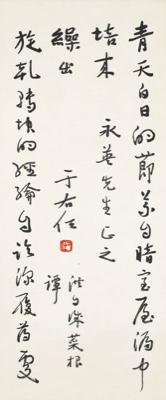 青天白日的節義自暗室屋漏中
培来
旋乾轉坤的經綸自臨深履薄處
繰出
洪自誠菜根
譚
永英先生正之
于右任